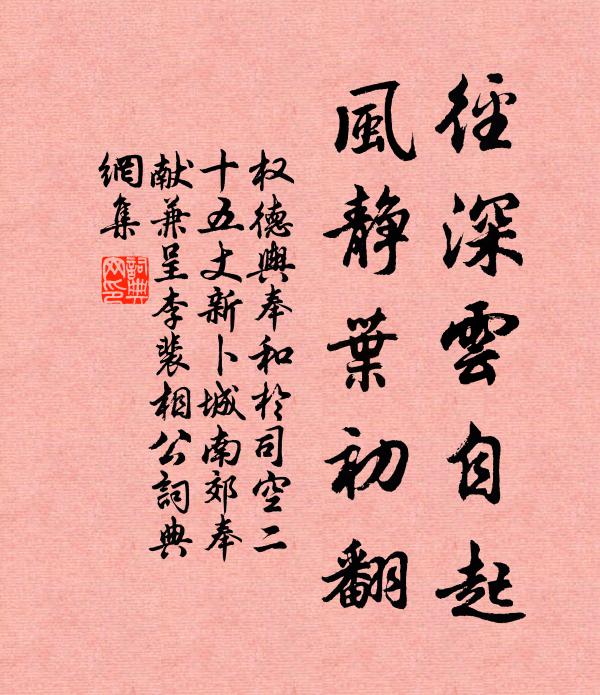 徑深雲自起
風靜葉初翻
权德輿奉和於司空二
十五丈新卜城南郊奉
献兼呈李裴相公詞典
網集
詞典網印